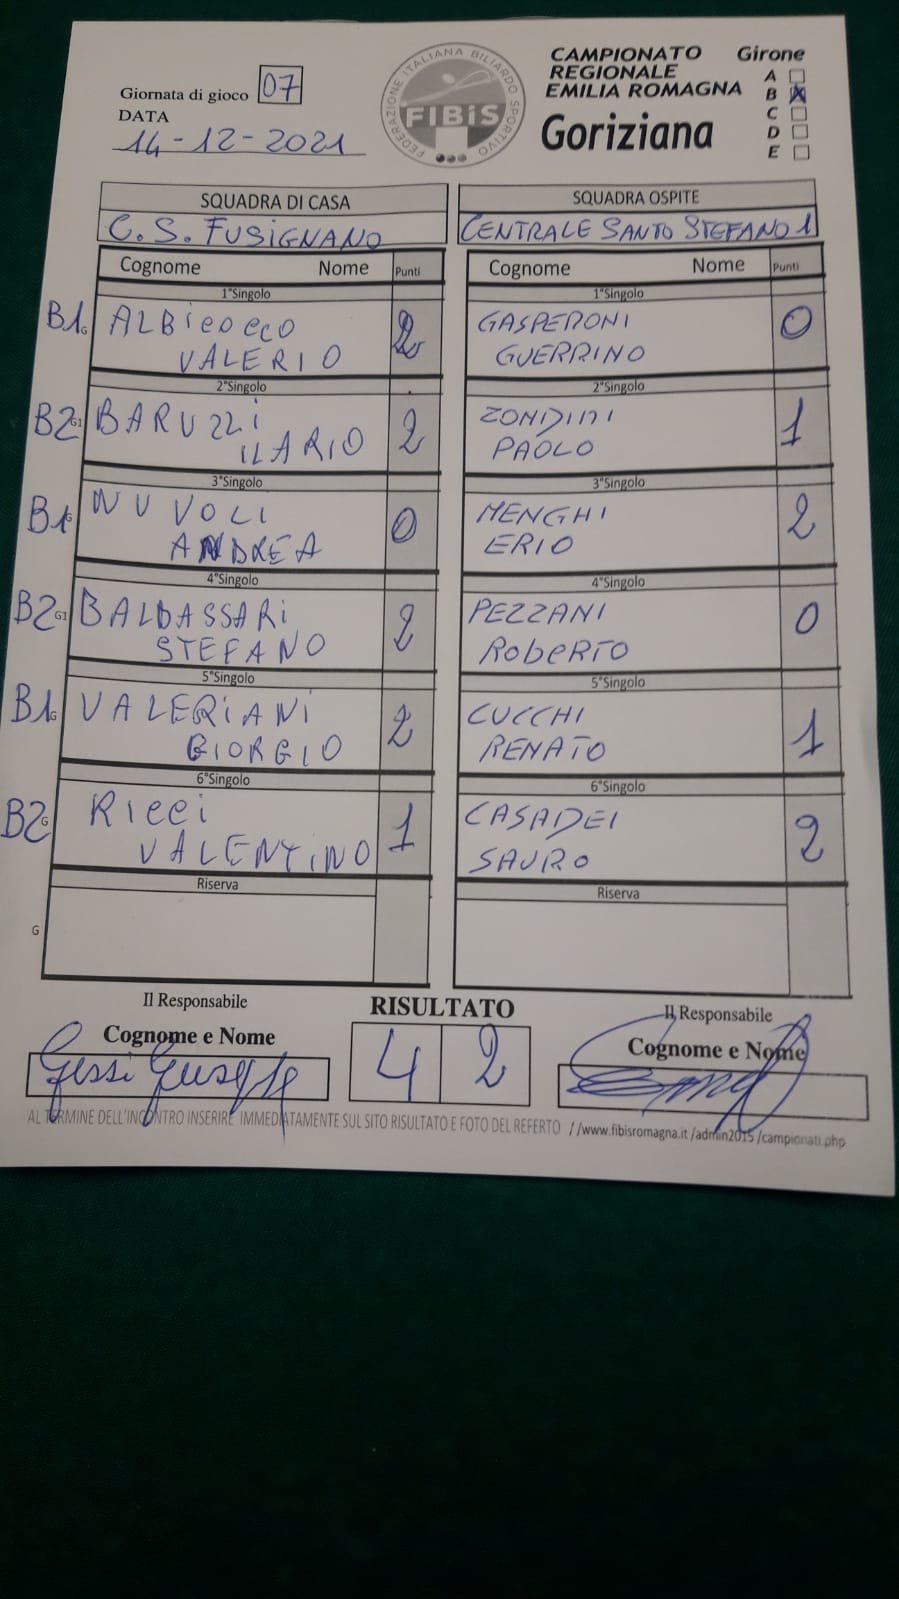 Giornata di gioco 07
DATA
14-12-2021
FEDERAZIONE ITALIANA BILIARDO SPORTIVO
FIBiS
CAMPIONATO
REGIONALE
EMILIA ROMAGNA
Goriziana
Girone
A
B X
C
D
E
SQUADRA DI CASA SQUADRA OSPITE
C.S. FUSIGNANO CENTRALE SANTO STEFANO 1
Cognome Nome Punti Cognome Nome Punti
1°Singolo 1°Singolo
B1 G ALBicocco 2 GASPERONI 0
VALERIO GUERRINO
2°Singolo 2°Singolo
B2 G1 BARUZZi 2 ZONDINI 1
ILARIO PAOLO
3°Singolo 3°Singolo
B1 G NUVOLI 0 MENGHI 2
ANDREA ERIO
4°Singolo 4°Singolo
B2 G1 BALDASSARi 2 PEZZANI 0
STEFANO RobERTO
5°Singolo 5°Singolo
B1 G VALERiANi 2 CUCCHI 1
GIORGIO RENATO
6°Singolo 6°Singolo
B2 G Ricci 1 CASADEI 2
VALENTiNO SAURO
Riserva Riserva
G
Il Responsabile RISULTATO Il Responsabile
Cognome e Nome 4 2 Cognome e Nome
Gessi
AL TERMINE DELL'INCONTRO INSERIRE IMMEDIATAMENTE SUL SITO RISULTATO E FOTO DEL REFERTO //www.fibisromagna.it /admin2015 /campionati.php